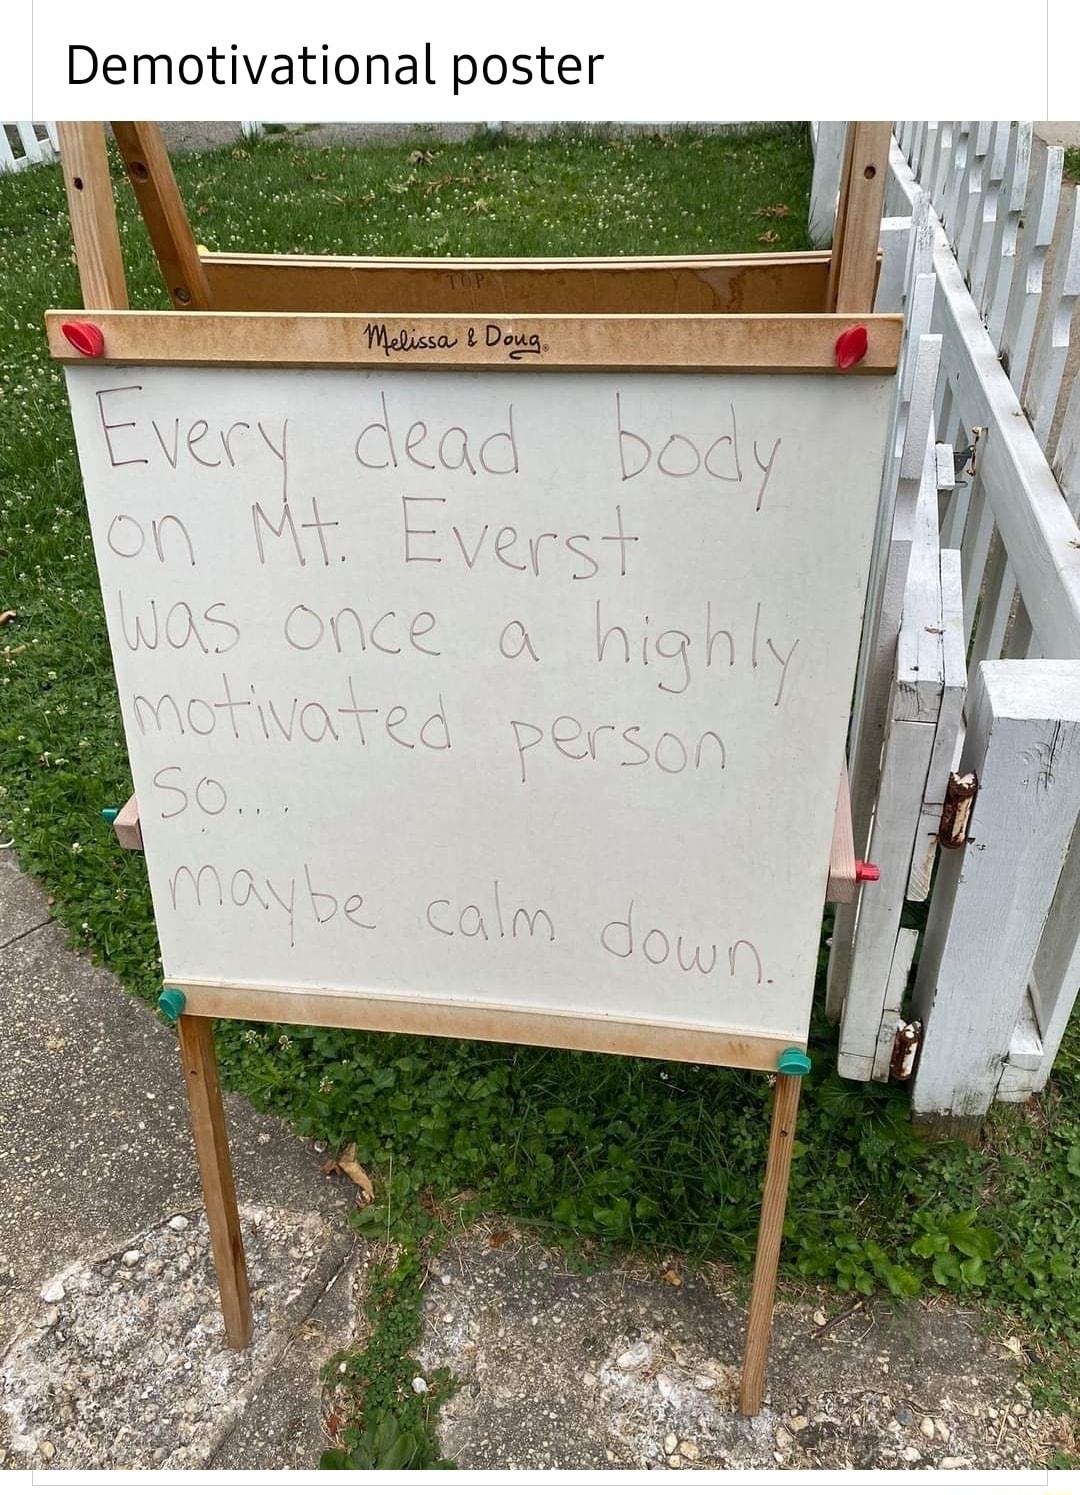 Demotivational poster
TOP
Melissa & Doug®
Every dead body
on Mt. Everst
was once a highly
motivated person
so...
maybe calm down.